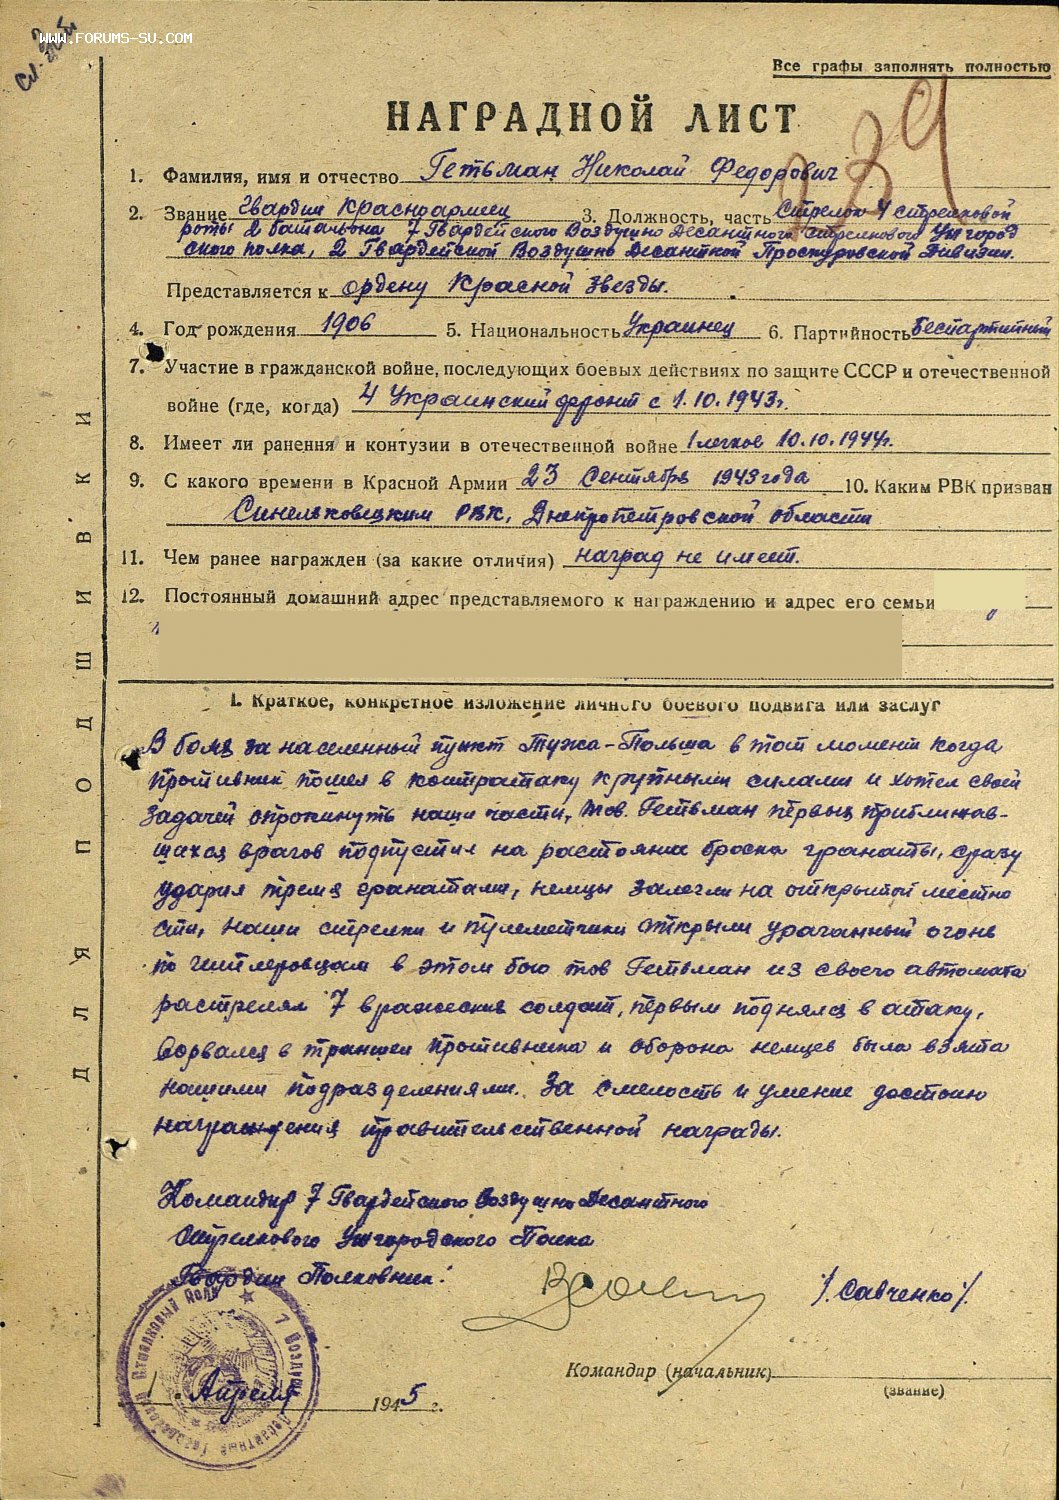 www.forums-su.com
Все графы заполнять полностью
239
НАГРАДНОЙ ЛИСТ
1. Фамилия, имя и отчество Гетьман Николай Федорович
2. Звание Гвардии Красноармеец 3. Должность, часть Стрелок 4 стрелковой
роты 2 батальона 7 Гвардейского Воздушно Десантного стрелкового Ужгород
ского полка, 2 Гвардейской Воздушно Десантной Проскуровской Дивизии.
Представляется к ордену Красной Звезды.
4. Год рождения 1906 5. Национальность Украинец 6. Партийность Беспартийный
7. Участие в гражданской войне, последующих боевых действиях по защите СССР и отечественной
войне (где, когда) 4 Украинский фронт с 1.10.1943г.
8. Имеет ли ранения и контузии в отечественной войне 1 легкое 10.10.1944г.
9. С какого времени в Красной Армии 23 Сентября 1943 года 10. Каким РВК призван
Синельковецким РВК, Днепропетровской области
11. Чем ранее награжден (за какие отличия) наград не имеет.
12. Постоянный домашний адрес представляемого к награждению и адрес его семьи
I. Краткое, конкретное изложение личного боевого подвига или заслуг
В боях за населенный пункт Тужа-Польша в тот момент когда
противник пошел в контратаку крупными силами и хотел своей
задачей опрокинуть наши части, тов. Гетьман первых приближав-
шихся врагов подпустил на растояние броска гранаты, сразу
ударил тремя гранатами, немцы залегли на открытой местно
сти, наши стрелки и пулеметчики открыли ураганный огонь
по гитлеровцам в этом бою тов Гетьман из своего автомата
растрелял 7 вражеских солдат, первым поднялся в атаку,
ворвался в траншеи противника и оборона немцев была взята
нашими подразделениями. За смелость и умение достоин
награждения правительственной награды.
Командир 7 Гвардейского Воздушно Десантного
Стрелкового Ужгородского Полка
Гвардии Полковник: /Савченко/.
Командир (начальник)
(звание)
1 . Апреля 1945 г.
ДЛЯ ПОДШИВКИ